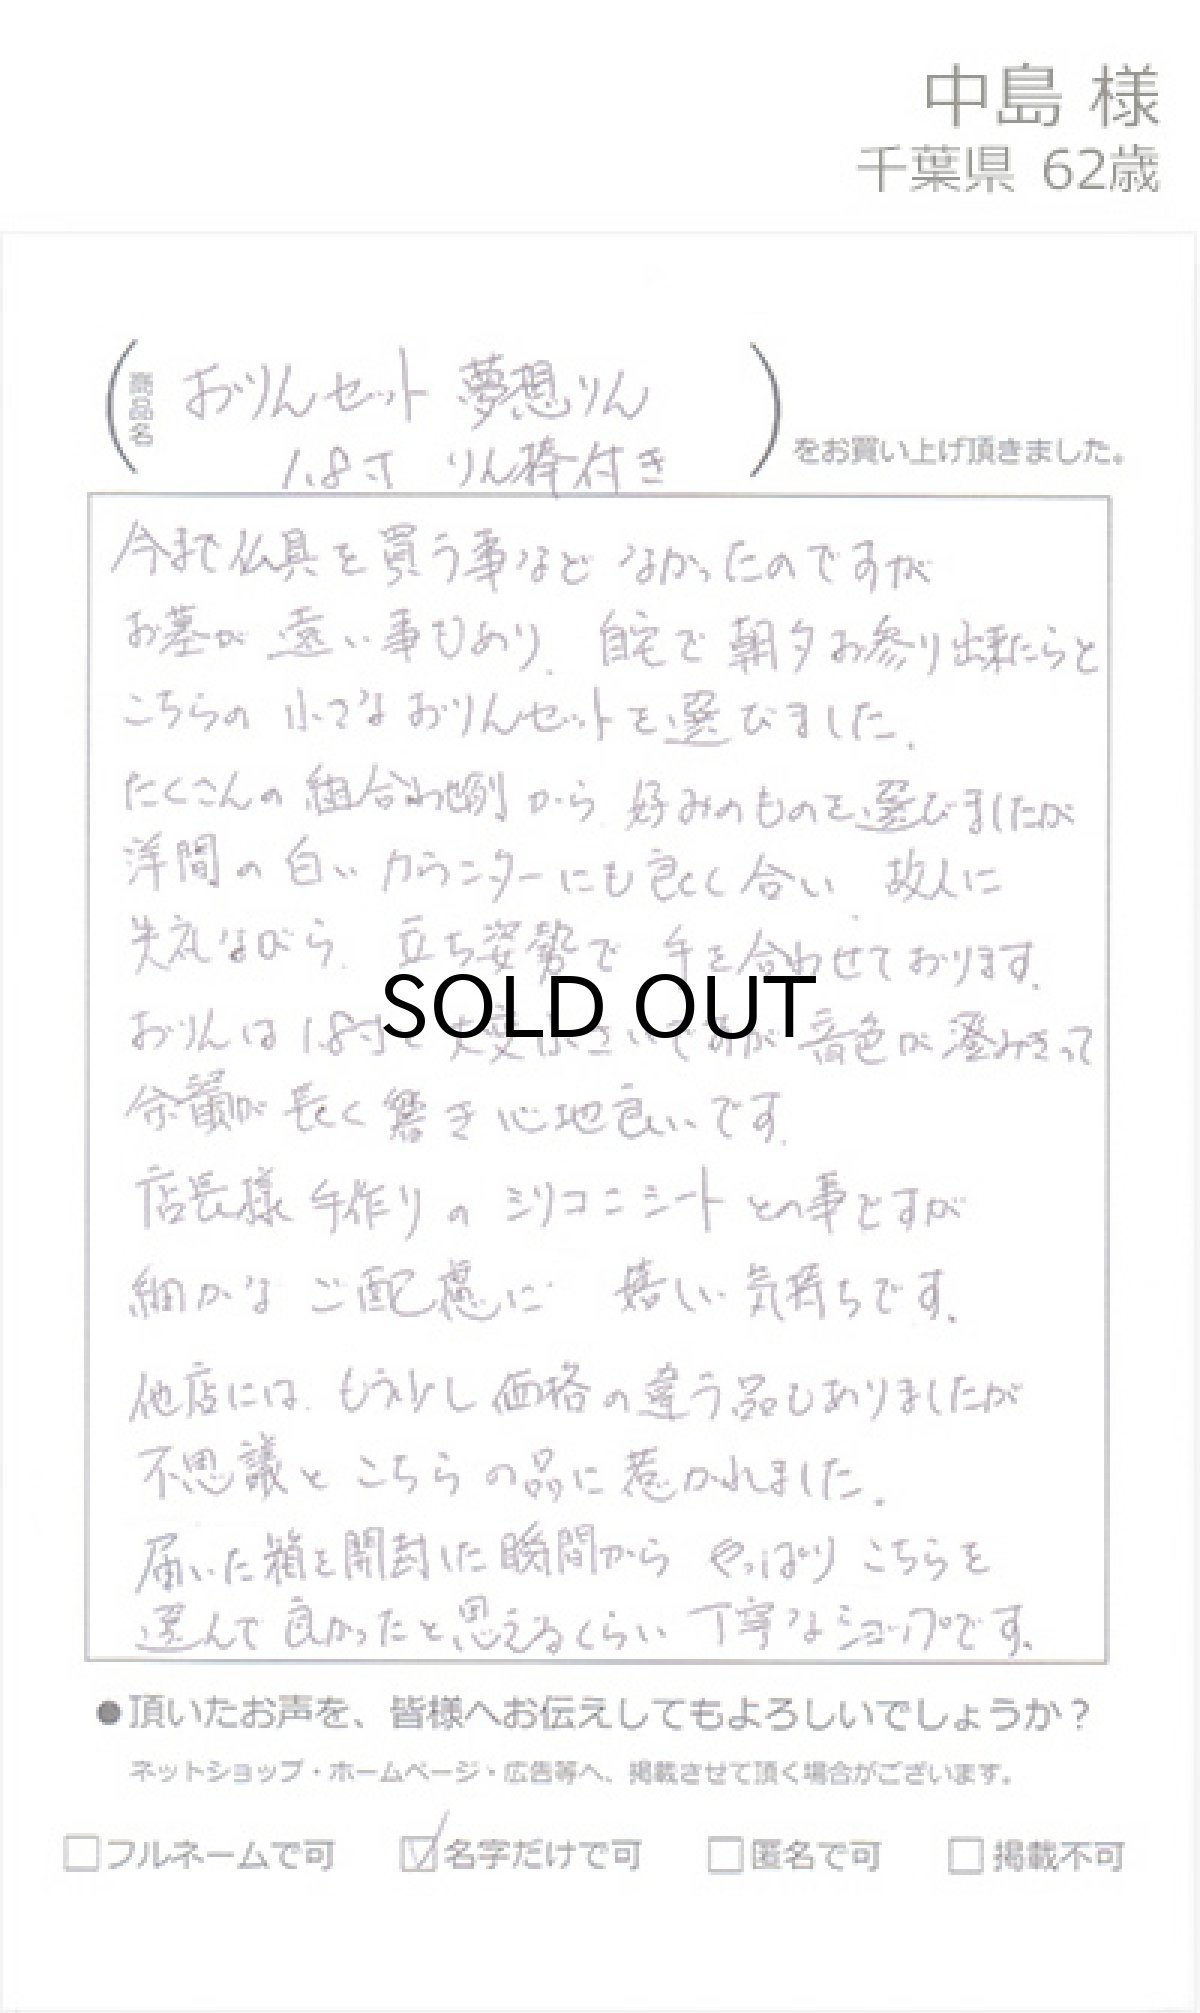 中島 様
千葉県 62歳
商品名
おりんセット 夢想りん
1.8寸 りん棒付き
をお買い上げ頂きました。
今まで仏具を買う事など なかったのですが
お墓が遠い事もあり、自宅で朝夕お参り出来たらと
こちらの小さなおりんセットを選びました。
たくさんの組合わせ例から 好みのものを選びましたが
洋間の白いカウンターにも良く合い 故人に
失礼ながら、立ち姿勢で 手を合わせております。
おりんは1.8寸と大変小さいですが 音色が澄みきって
余韻が長く響き心地良いです。
店長様手作りの シリコンシートとの事ですが
細かな ご配慮に 嬉しい気持ちです。
他店には、もう少し価格の違う品もありましたが
不思議と こちらの品に惹かれました。
届いた箱を開封した瞬間から やっぱりこちらを
選んで良かったと思えるくらい 丁寧なショップです。
SOLD OUT
●頂いたお声を、皆様へお伝えしてもよろしいでしょうか？
ネットショップ・ホームページ・広告等へ、掲載させて頂く場合がございます。
□フルネームで可 ☑名字だけで可 □匿名で可 □掲載不可